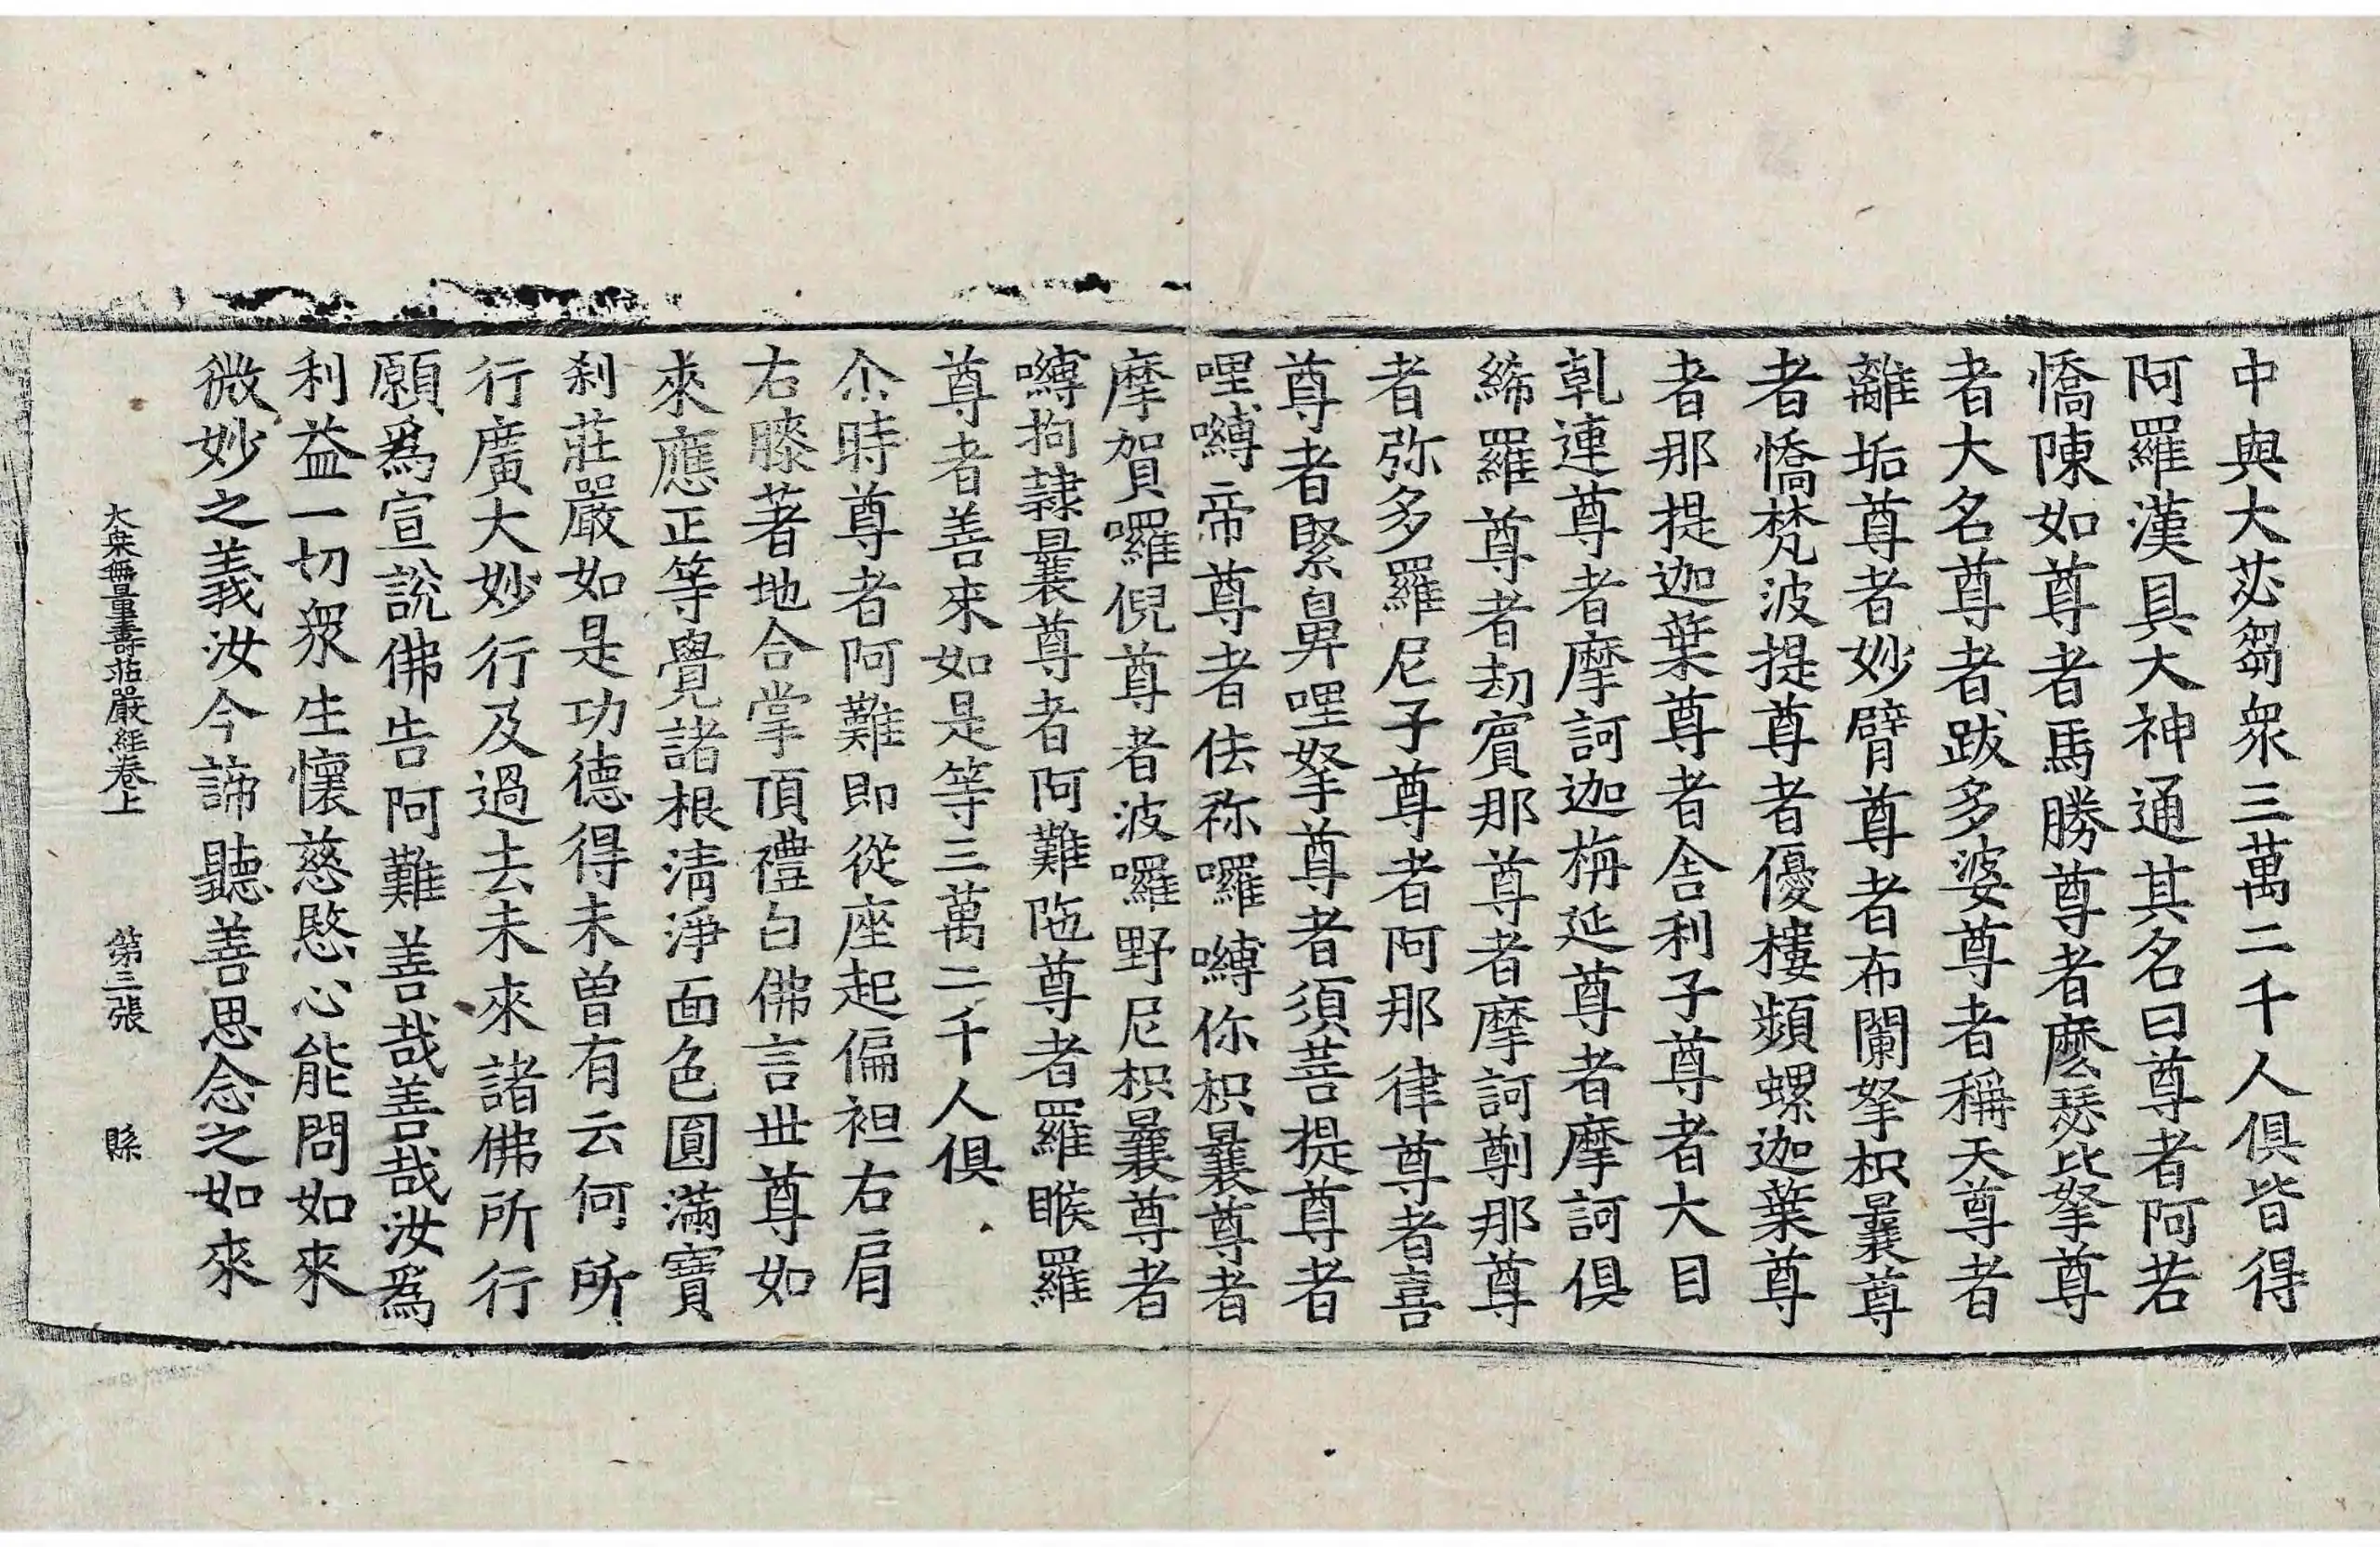 中與大苾芻衆三萬二千人俱皆得
阿羅漢具大神通其名曰尊者阿若
憍陳如尊者馬勝尊者麽瑟比拏尊
者大名尊者跋多婆尊者稱天尊者
離垢尊者妙臂尊者布闌拏枳曩尊
者憍梵波提尊者優樓頻螺迦葉尊
者那提迦葉尊者舍利子尊者大目
乹連尊者摩訶迦旃延尊者摩訶俱
絺羅尊者劫賓那尊者摩訶蒭那尊
者弥多羅尼子尊者阿那律尊者喜
尊者緊鼻哩拏尊者須菩提尊者
哩嚩帝尊者佉祢囉嚩你枳曩尊者
摩賀囉倪尊者波囉野尼枳曩尊者
嚩拘隸曩尊者阿難陁尊者羅睺羅
尊者善來如是等三萬二千人俱
尒時尊者阿難即從座起偏袒右肩
右膝著地合掌頂禮白佛言世尊如
來應正等覺諸根清淨面色圓滿寶
刹莊嚴如是功德得未曾有云何所
行廣大妙行及過去未來諸佛所行
願爲宣說佛告阿難善哉善哉汝爲
利益一切衆生懷慈愍心能問如來
微妙之義汝今諦聽善思念之如來
大乗無量壽莊嚴經卷上 第三張 縣